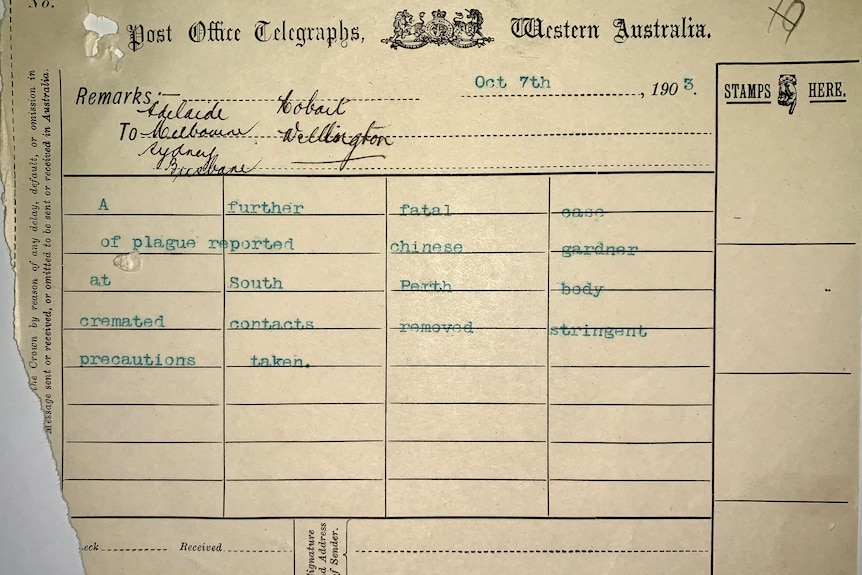 No.
Post Office Telegraphs, Western Australia.
Oct 7th, 1903.
STAMPS HERE.
Remarks:—
Adelaide Hobart
To Melbourne Wellington
Sydney
Brisbane
A further fatal case
of plague reported chinese gardner
at South Perth body
cremated contacts removed stringent
precautions taken.
the Crown by reason of any delay, default, or omission in
Message sent or received, or omitted to be sent or received in Australia.
Received
Signature
Address
of Sender.